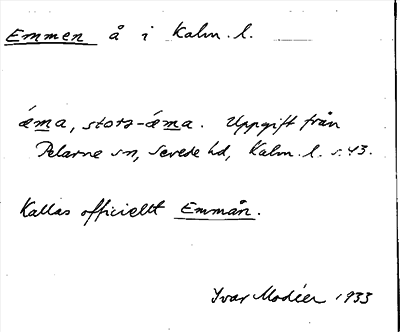 Emmen å i Kalm. l.
ǽma, stora-ǽma. Uppgift från
Pelarne sn, Sevede hd, Kalm. l. s. 43.
Kallas officiellt Emmån.
Ivar Modéer 1933